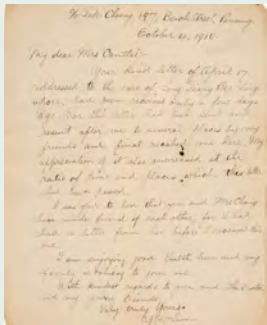 Beach Street, Penang
October 20, 1910
My dear Mrs Cantlie:-
Your kind letter of April 07
addressed to the care of
have been received only a few days
ago. For the letter had been sent and
resent after me to several places by my
friends and final reached me here. My
appreciation of it also increased at the
ratio of time and places which the letter
had passed.
I was glad to know that you and Mrs Chang
have made friend of each other, for I had
had a letter from her before I received this
one.
I am enjoying good health here and my
family is coming to join me.
With kindest regards to you and the Doctor
and my young friends,
Very truly yours